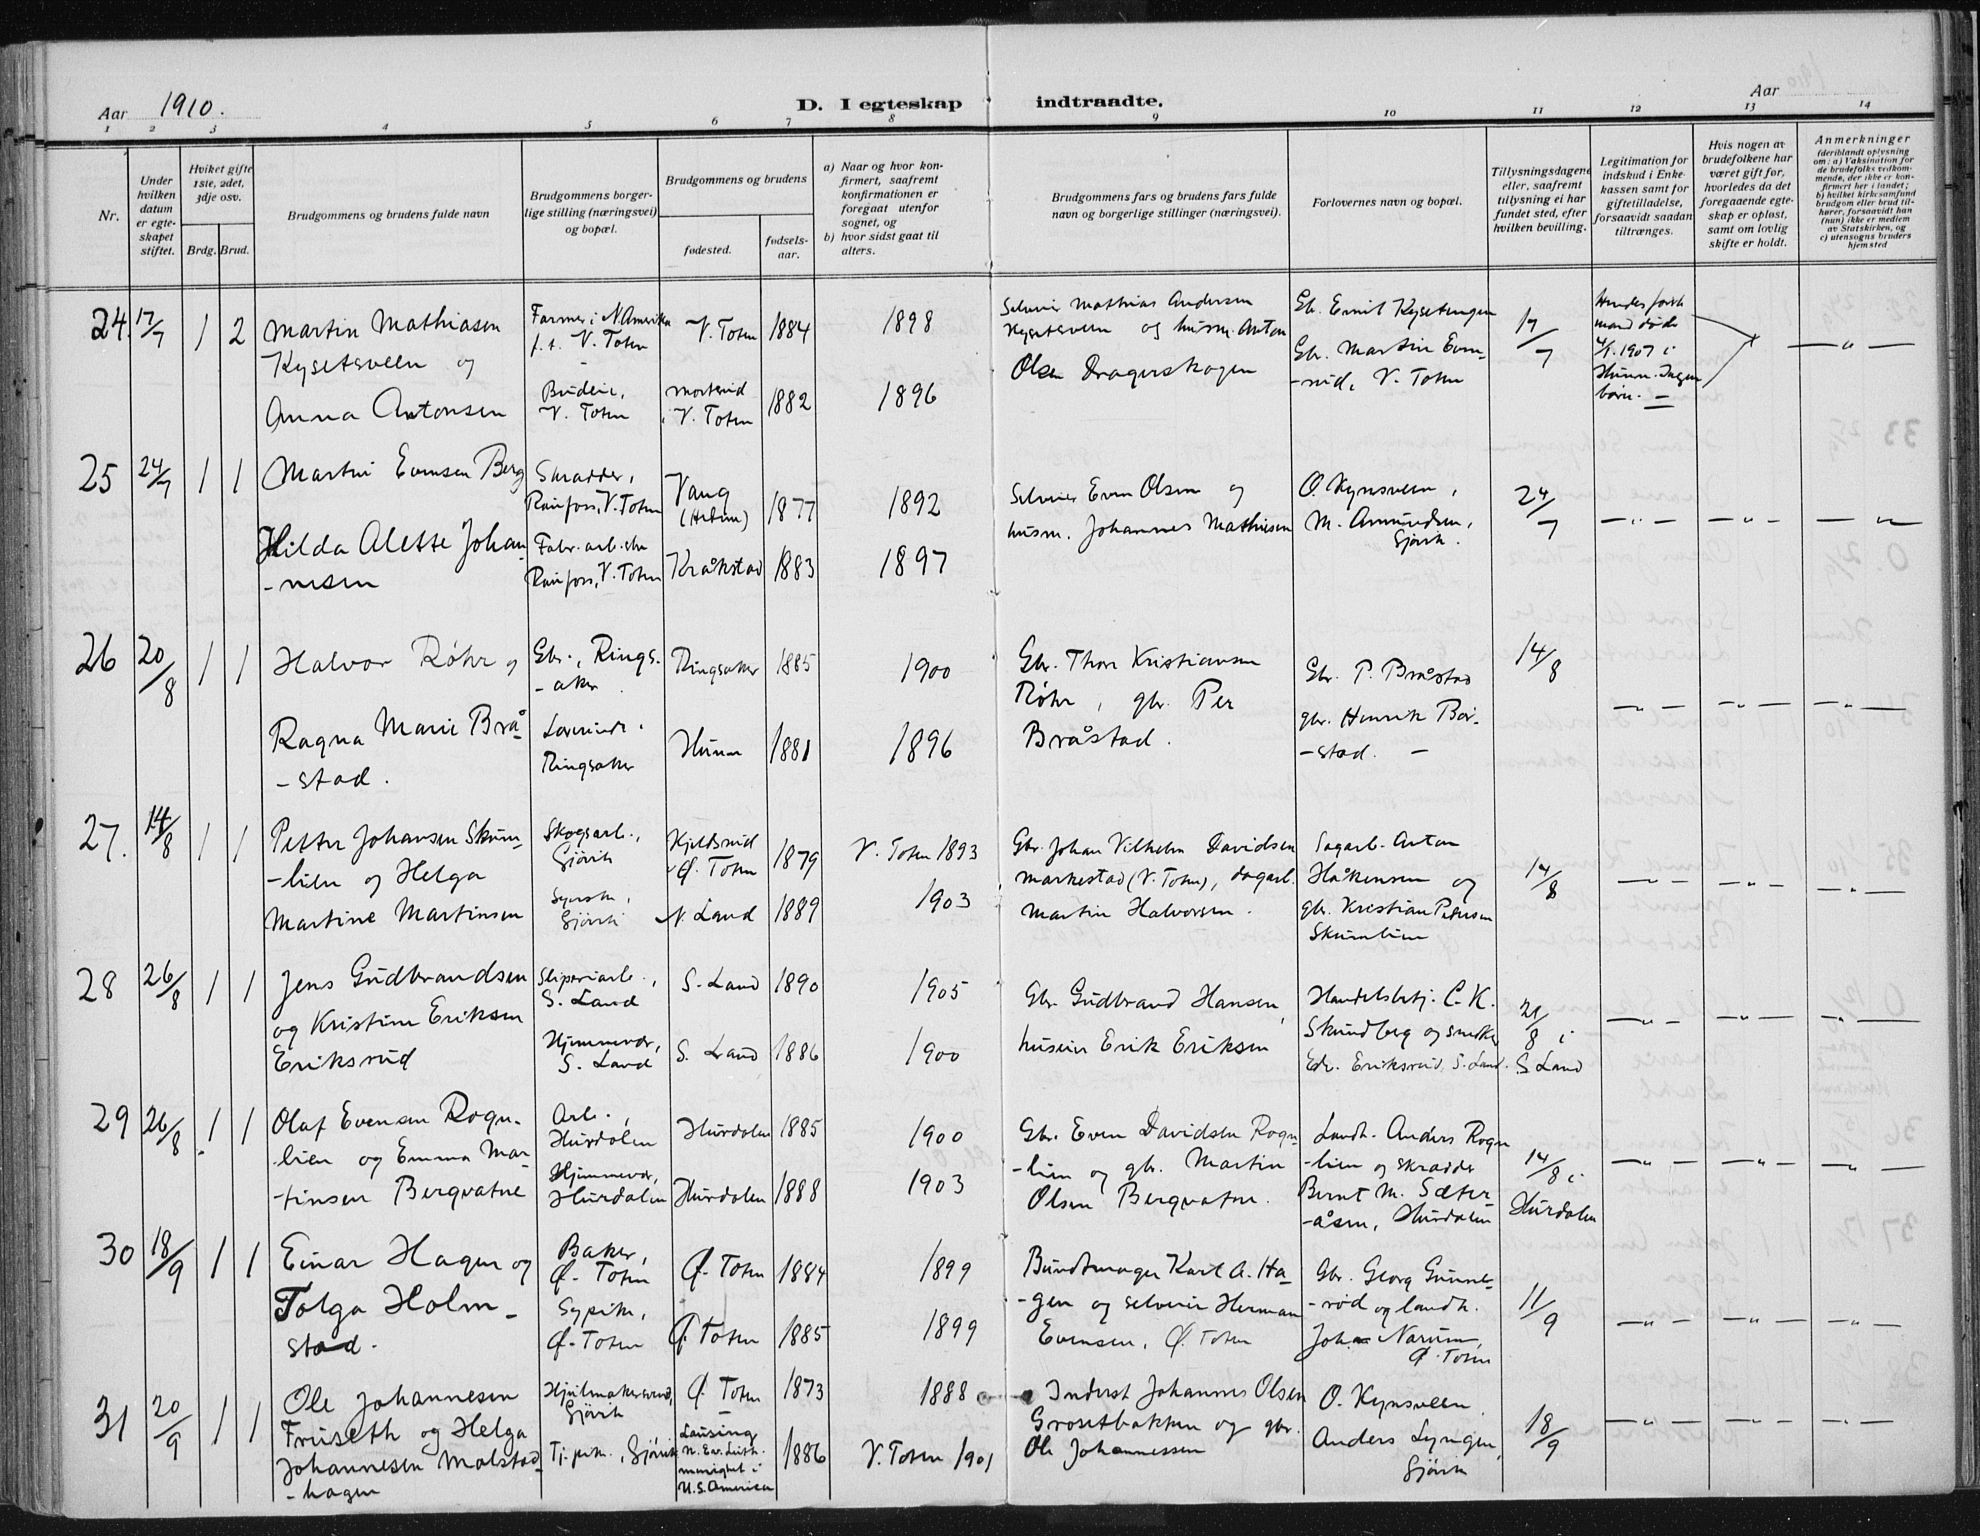 Aar 1910.
D. I egteskap indtraadte.
Aar
1 2 3 4 5 6 7 8 9 10 11 12 13 14
Nr.
Under hvilken datum er egteskapet stiftet.
Hviket gifte 1ste, 2det, 3dje osv.
Brdg. Brud.
Brudgommens og brudens fulde navn
Brudgommens borgerlige stilling (næringsvei) og bopæl.
Brudgommens og brudens
fødested.
fødselsaar.
a) Naar og hvor konfirmert, saafremt konfirmationen er foregaat utenfor sognet, og
b) hvor sidst gaat til alters.
Brudgommens fars og brudens fars fulde navn og borgerlige stillinger (næringsvei).
Forlovernes navn og bopæl.
Tillysningsdagene eller, saafremt tillysning ei har fundet sted, efter hvilken bevilling.
Legitimation for indskud i Enkekassen samt for giftetilladelse, forsaavidt saadan tiltrænges.
Hvis nogen av brudefolkene har været gift før, hvorledes da det foregaaende egteskap er opløst, samt om lovlig skifte er holdt.
Anmerkninger (deriblandt oplysning om: a) Vaksination for de brudefolks vedkommende, der ikke er konfirmert her i landet; b) hvilket kirkesamfund brudgom eller brud tilhører, forsaavidt han (hun) ikke er medlem av Statskirken, og c) utensogns bruders hjemsted
24. 17/7 1 2
Martin Mathiasen
Kysetsveen og
Anna Antonsen
Farmer i N. Amerika
f. t. V. Toten
Budeie,
V. Toten
V. Toten 1884 1898
i V. Toten 1882 1896
Selveier Mathias Andersen
Kysetsveen og husm. Anton
Olsen Dragerskogen
Gbr. Emil Kysetengen
Gbr. Martin Even-
-rud, V. Toten
17/7
Hendes forste
mand døde
4/1. 1907 i
Hunn. Ingen
børn. —
— " —
25 24/7 1 1
Martin Evensen Berg
Hilda Alette Johan-
-nesen
Skrædder,
Raufoss, V. Toten
Fabr. arb.ske
Raufoss, V. Toten
Vang
(Hedm.) 1877 1892
Kråkstad 1883 1897
Selveier Even Olsen og
husm. Johannes Mathisen
O. Kynsveen,
M. Amundsen,
Gjøvik.
24/7
— " — — " — — " —
26 20/8 1 1
Halvor Røhr og
Ragna Marie Brå-
-stad.
Gbr., Rings-
-aker.
Lærerinde.
Ringsaker
Ringsaker 1885 1900
Hunn 1881 1896
Gbr. Thore Kristiansen
Røhr, gbr. Per
Bråstad.
Gbr. P. Bråstad
gbr. Henrik Brå-
-stad. —
14/8
— " — — " — — " —
27. 14/8 1 1
Petter Johansen Skum-
-lien og Helga
Martine Martinsen
Skogsarb.,
Gjøvik
Syerske,
Gjøvik
Kjeldsrud
Ø. Toten 1879 V. Toten 1893
N. Land 1889 1903
Gbr. Johan Vilhelm Davidsen
Markestad (V. Toten), dagarb.
Martin Halvorsen.
Sagarb. Anton
Håkensen og
gbr. Kristian Petersen
Skumlien
14/8
— " — — " — — " —
28 26/8 1 1
Jens Gudbrandsen
og Kristine Eriksen
Eriksrud
Sliperiarb.,
S. Land
Hjemmevær.,
S. Land
S. Land 1890 1905
S. Land 1886 1900
Gbr. Gudbrand Hansen,
huseier Erik Eriksen
Handelsbetj. C. K.
Skundberg og snedker
Edv. Eriksrud, S. Land.
21/8 i
S. Land
— " — — " — — " —
29 26/8 1 1
Olaf Evensen Rogn-
-lien og Emma Mar-
-tinsen Bergvatne
Arb.,
Hurdalen
Hjemmevær.,
Hurdalen
Hurdalen 1885 1900
Hurdalen 1888 1903
Gbr. Even Davidsen Rogn-
-lien og gbr. Martin
Olsen Bergvatne.
Landh. Anders Rogn-
-lien og skrædder
Bernt M. Sæter-
-åsen, Hurdalen
14/8 i
Hurdalen
— " — — " — — " —
30 18/9 1 1
Einar Hagen og
Tolga Holm-
stad.
Baker,
Ø. Toten
Sypike,
Ø. Toten
Ø. Toten 1884 1899
Ø. Toten 1885 1899
Bundtmager Karl A. Ha-
-gen og selveier Herman
Evensen, Ø. Toten
Gbr. Georg Gunne-
-rød og landh.
Johan Narum,
Ø. Toten
11/9
— " — — " — — " —
31 20/9 1 1
Ole Johannesen
Fruseth og Helga
Johannesen Molstad-
-hagen
Hjulmakersvend,
Gjøvik
Tj. pike, Gjøvik
Ø. Toten 1873 1888
Lansing
N. Ev. Luth.
menighet i
U.S. America 1886 V. Toten 1901
Inderst Johannes Olsen
Grosetbakken og gbr.
Ole Johannessen
O. Kynsveen
Anders Lyngen,
Gjøvik
18/9
— " — — " — — " —